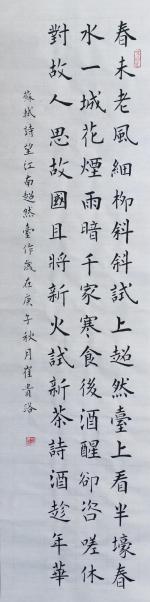 春未老風細柳斜斜試上超然臺上看半壕春
水一城花煙雨暗千家寒食後酒醒卻咨嗟休
對故人思故國且將新火試新茶詩酒趁年華
蘇軾詩望江南超然臺作歲在庚午秋月崔貴洛